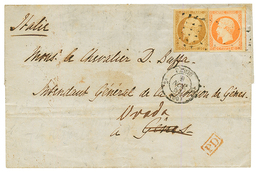 Italie
Mons. le Chevalier D. Buffa.
Intendant Général de la Division de Gênes.
Ovada
à Gênes
PD